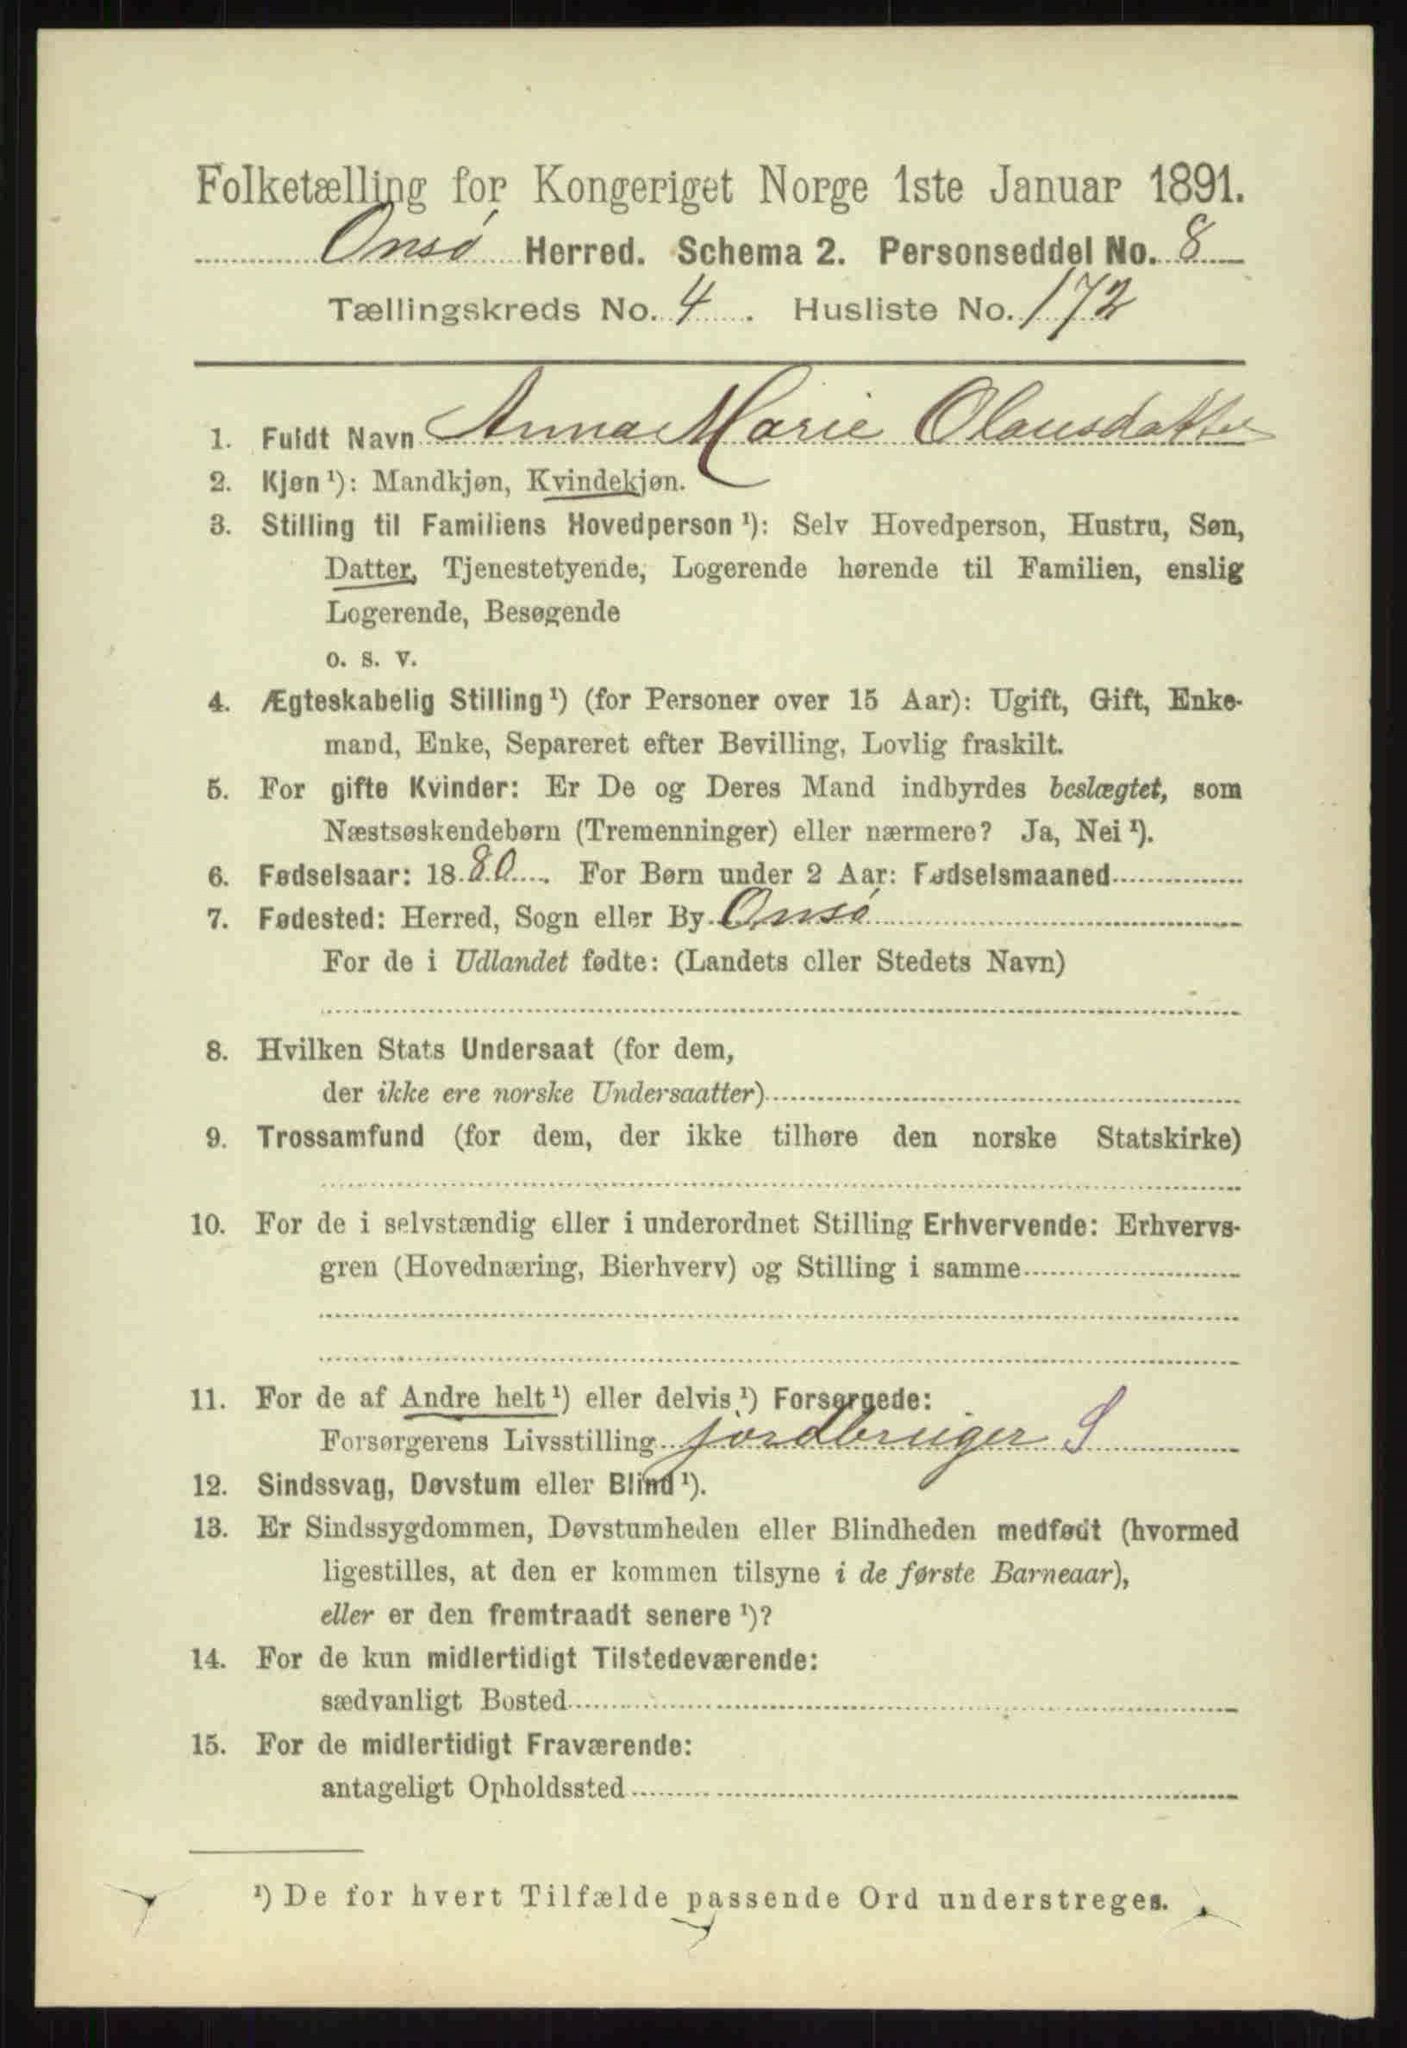 Folketælling for Kongeriget Norge 1ste Januar 1891.
Onsø Herred. Schema 2. Personseddel No. 8
Tællingskreds No. 4 . Husliste No. 172
1. Fuldt Navn Anna Marie Olausdatter
2. Kjøn ¹): Mandkjøn, Kvindekjøn.
3. Stilling til Familiens Hovedperson ¹): Selv Hovedperson, Hustru, Søn,
Datter, Tjenestetyende, Logerende hørende til Familien, enslig
Logerende, Besøgende
o. s. v.
4. Ægteskabelig Stilling ¹) (for Personer over 15 Aar): Ugift, Gift, Enke-
mand, Enke, Separeret efter Bevilling, Lovlig fraskilt.
5. For gifte Kvinder: Er De og Deres Mand indbyrdes beslægtet, som
Næstsøskendebørn (Tremenninger) eller nærmere? Ja, Nei ¹).
6. Fødselsaar: 1880. For Børn under 2 Aar: Fødselsmaaned
7. Fødested: Herred, Sogn eller By Onsø
For de i Udlandet fødte: (Landets eller Stedets Navn)
8. Hvilken Stats Undersaat (for dem,
der ikke ere norske Undersaatter)
9. Trossamfund (for dem, der ikke tilhøre den norske Statskirke)
10. For de i selvstændig eller i underordnet Stilling Erhvervende: Erhvervs-
gren (Hovednæring, Bierhverv) og Stilling i samme
11. For de af Andre helt ¹) eller delvis ¹) Forsørgede:
Forsørgerens Livsstilling jordbruger S
12. Sindssvag, Døvstum eller Blind ¹).
13. Er Sindssygdommen, Døvstumheden eller Blindheden medfødt (hvormed
ligestilles, at den er kommen tilsyne i de første Barneaar),
eller er den fremtraadt senere ¹)?
14. For de kun midlertidigt Tilstedeværende:
sædvanligt Bosted
15. For de midlertidigt Fraværende:
antageligt Opholdssted
¹) De for hvert Tilfælde passende Ord understreges.